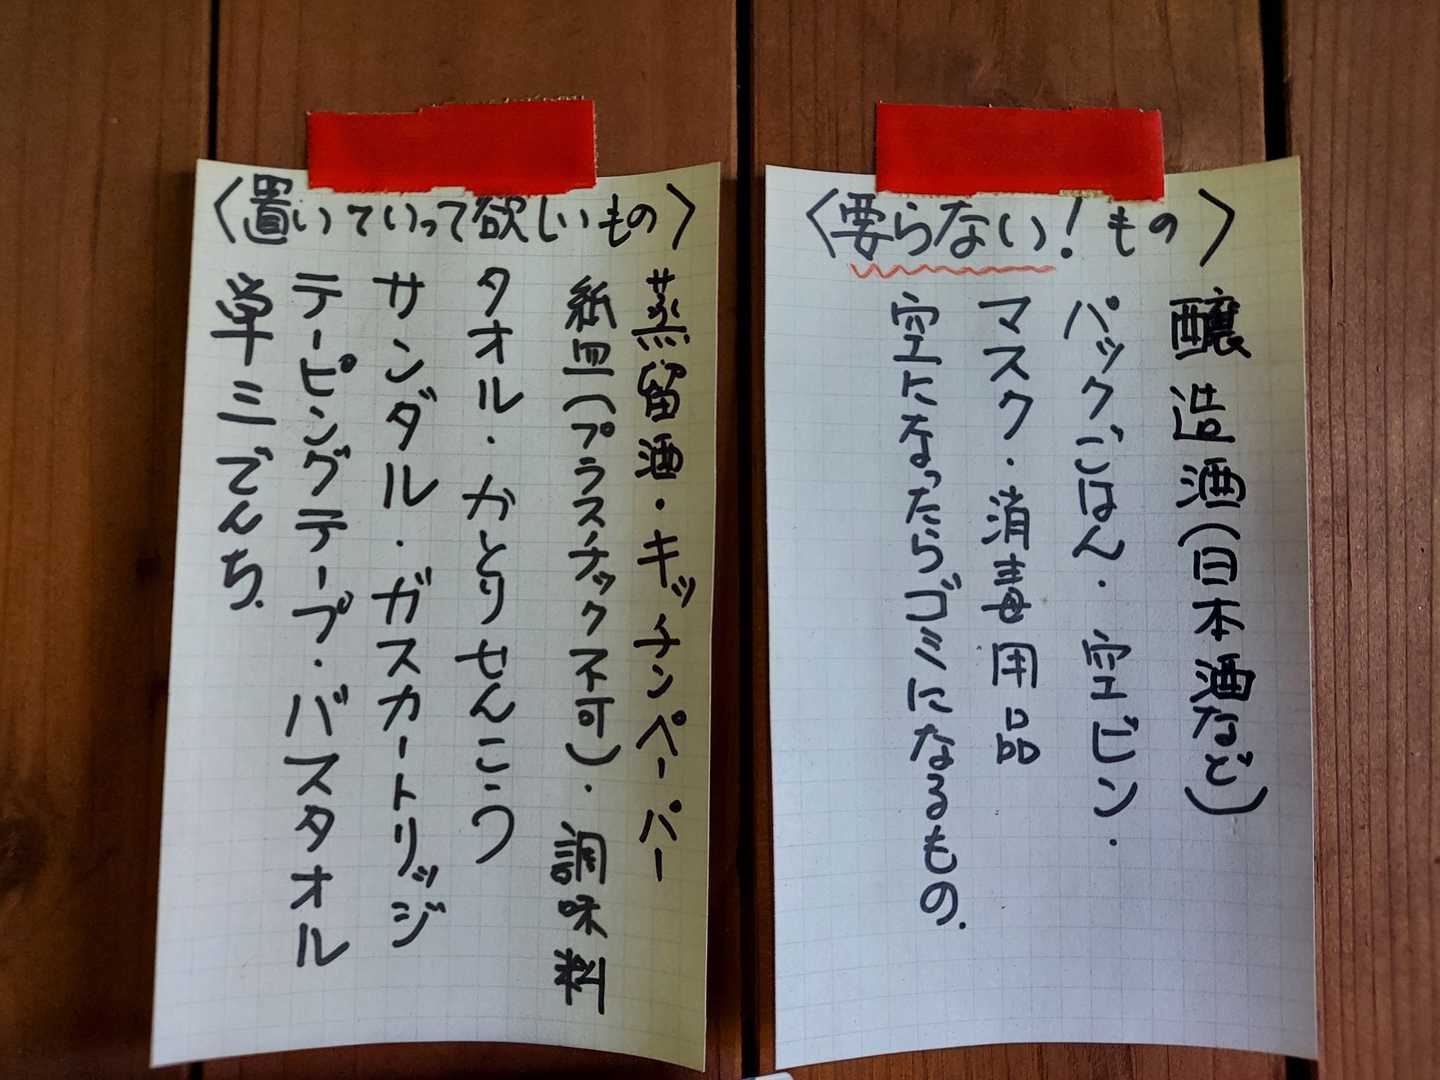 〈置いていって欲しいもの〉
蒸留酒・キッチンペーパー
紙皿(プラスチック不可)・調味料
タオル・かとりせんこう
サンダル・ガスカートリッジ
テーピングテープ・バスタオル
単三でんち.
〈要らない!もの〉
醸造酒(日本酒など)
パックごはん・空ビン・
マスク・消毒用品
空になったらゴミになるもの.